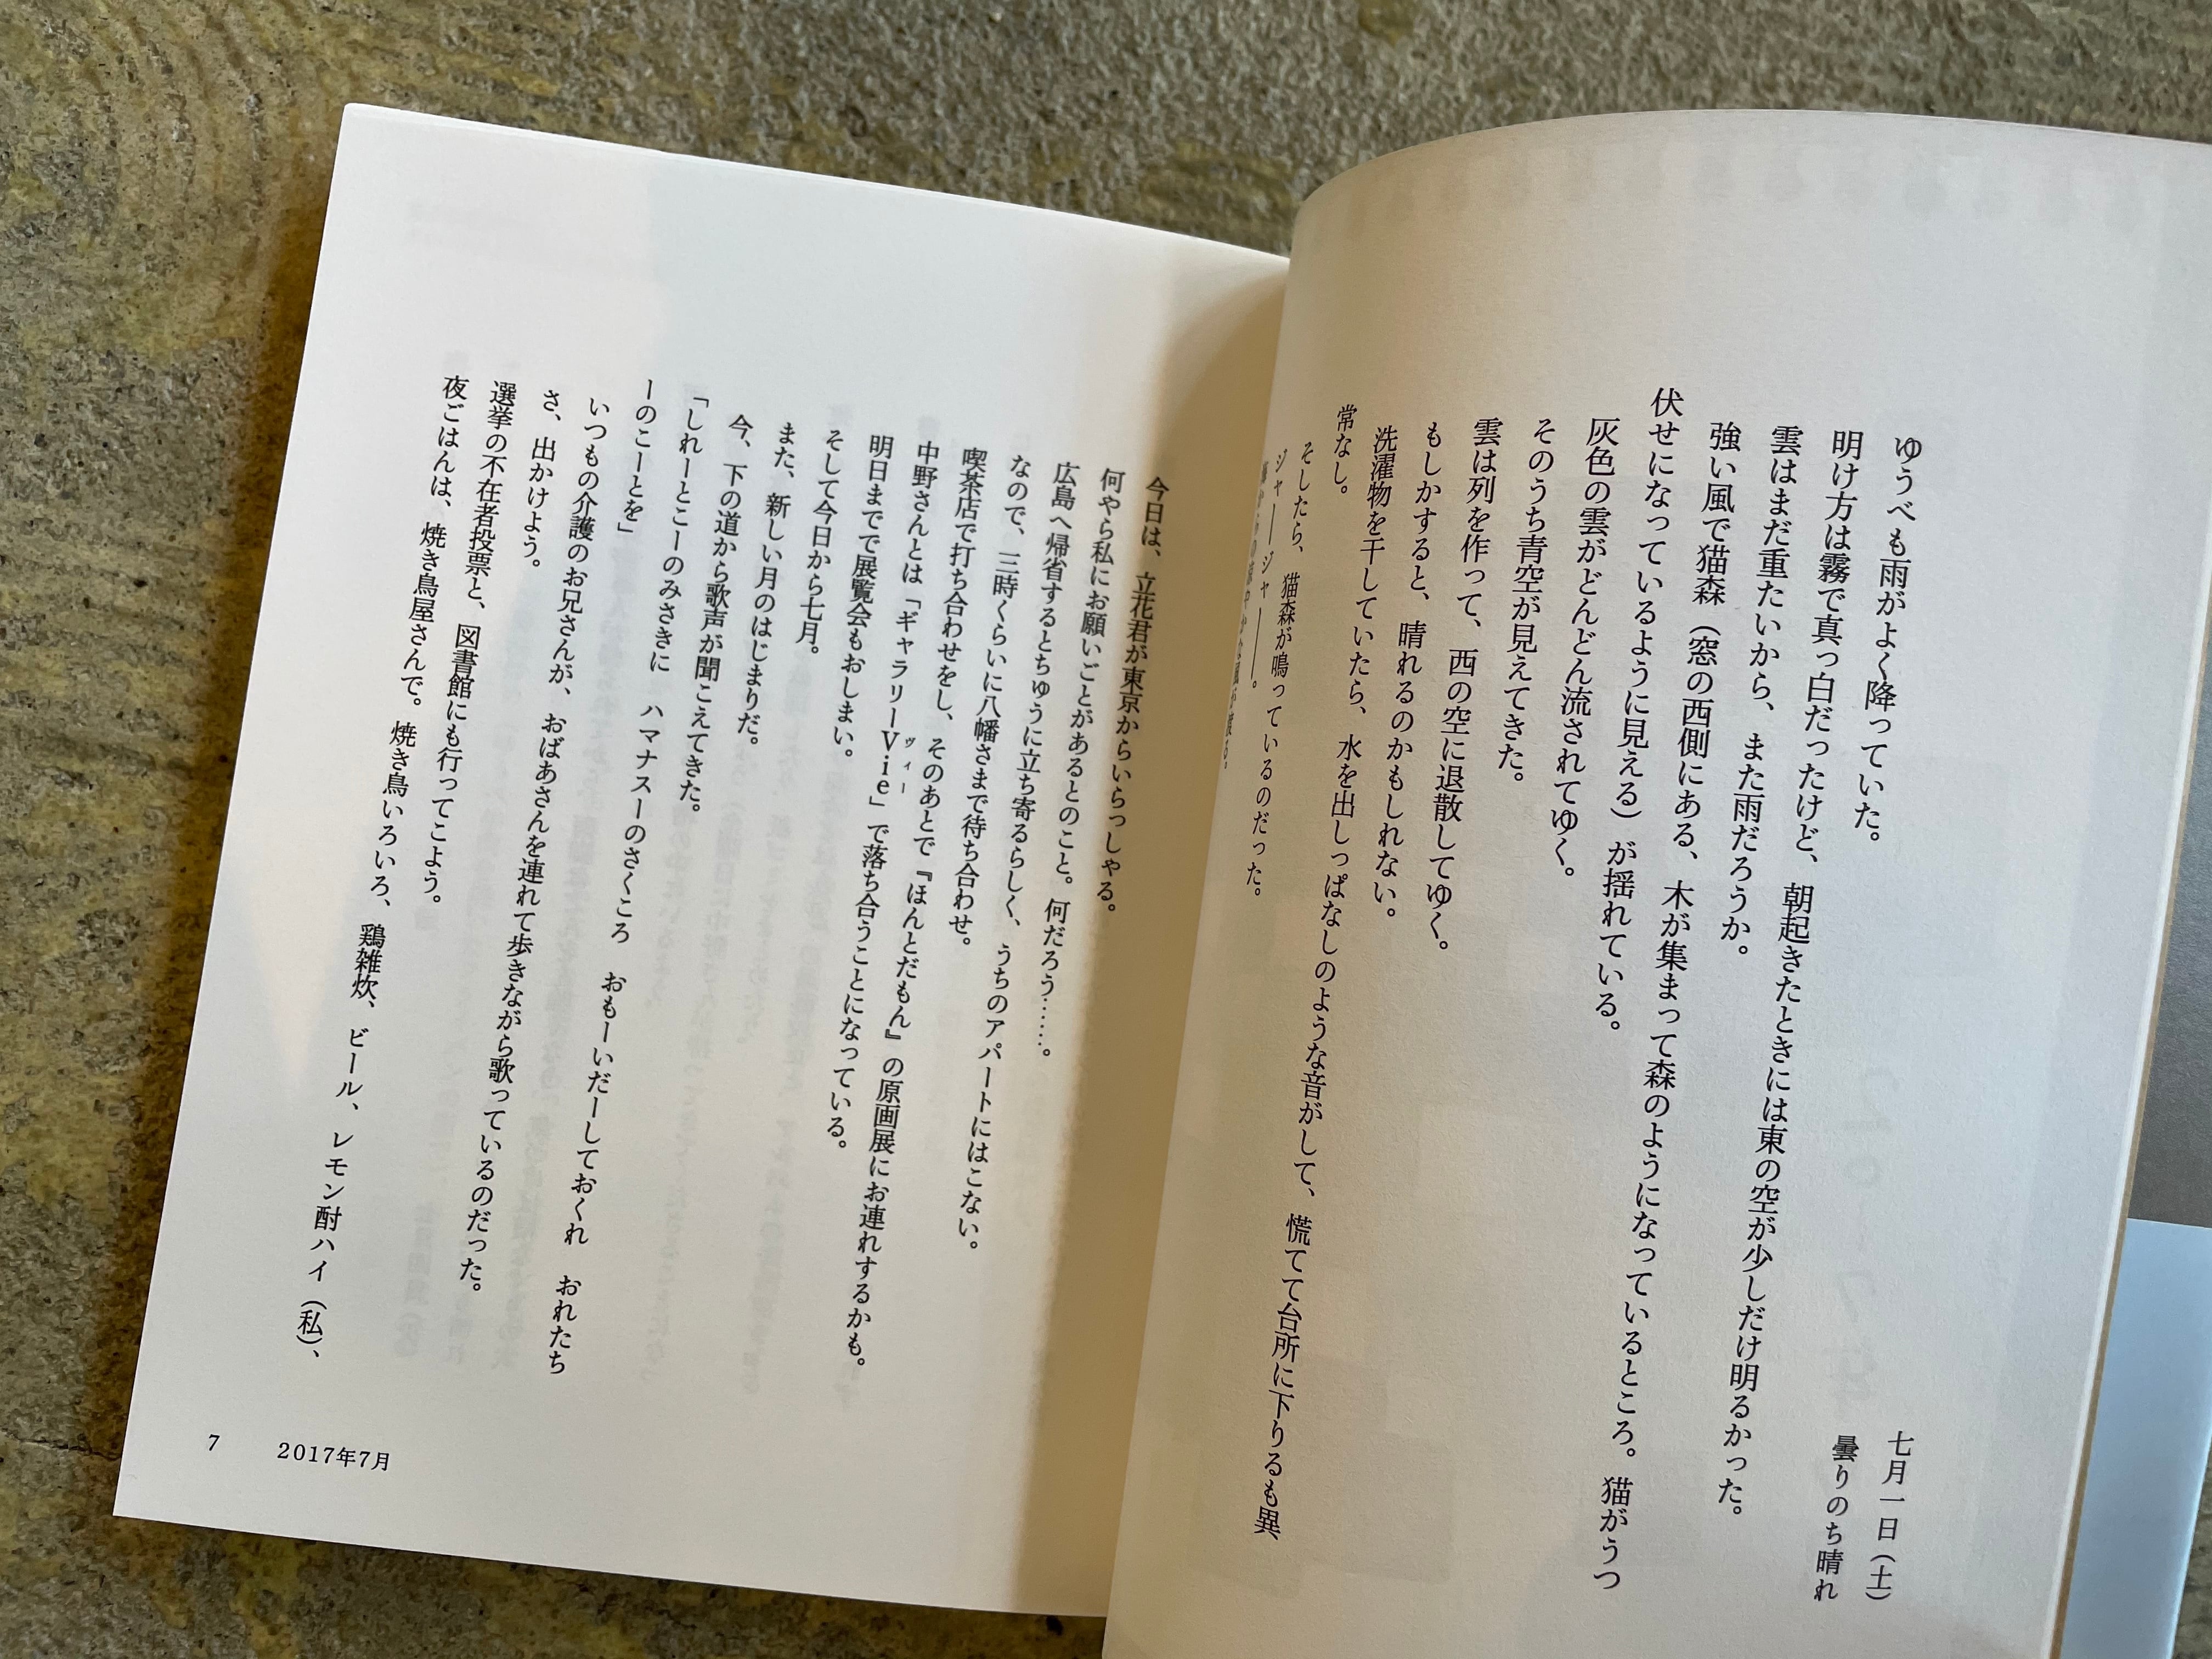 七月一日（土）
曇りのち晴れ
ゆうべも雨がよく降っていた。
明け方は霧で真っ白だったけど、朝起きたときには東の空が少しだけ明るかった。
雲はまだ重たいから、また雨だろうか。
強い風で猫森（窓の西側にある、木が集まって森のようになっているところ。猫がうつ
伏せになっているように見える）が揺れている。
灰色の雲がどんどん流されてゆく。
そのうち青空が見えてきた。
雲は列を作って、西の空に退散してゆく。
もしかすると、晴れるのかもしれない。
洗濯物を干していたら、水を出しっぱなしのような音がして、慌てて台所に下りるも異
常なし。
そしたら、猫森が鳴っているのだった。
ジャ――ジャ――。
今日は、立花君が東京からいらっしゃる。
何やら私にお願いごとがあるとのこと。何だろう……。
広島へ帰省するとちゅうに立ち寄るらしく、うちのアパートにはこない。
なので、三時くらいに八幡さまで待ち合わせ。
喫茶店で打ち合わせをし、そのあとで『ほんとだもん』の原画展にお連れするかも。
中野さんとは「ギャラリーVie」で落ち合うことになっている。
ヴィー
明日までで展覧会もおしまい。
そして今日から七月。
また、新しい月のはじまりだ。
今、下の道から歌声が聞こえてきた。
「しれーとこーのみさきに　ハマナスーのさくころ　おもーいだーしておくれ　おれたち
ーのこーとを」
いつもの介護のお兄さんが、おばあさんを連れて歩きながら歌っているのだった。
さ、出かけよう。
選挙の不在者投票と、図書館にも行ってこよう。
夜ごはんは、焼き鳥屋さんで。焼き鳥いろいろ、鶏雑炊、ビール、レモン酎ハイ（私）、
7　2017年7月